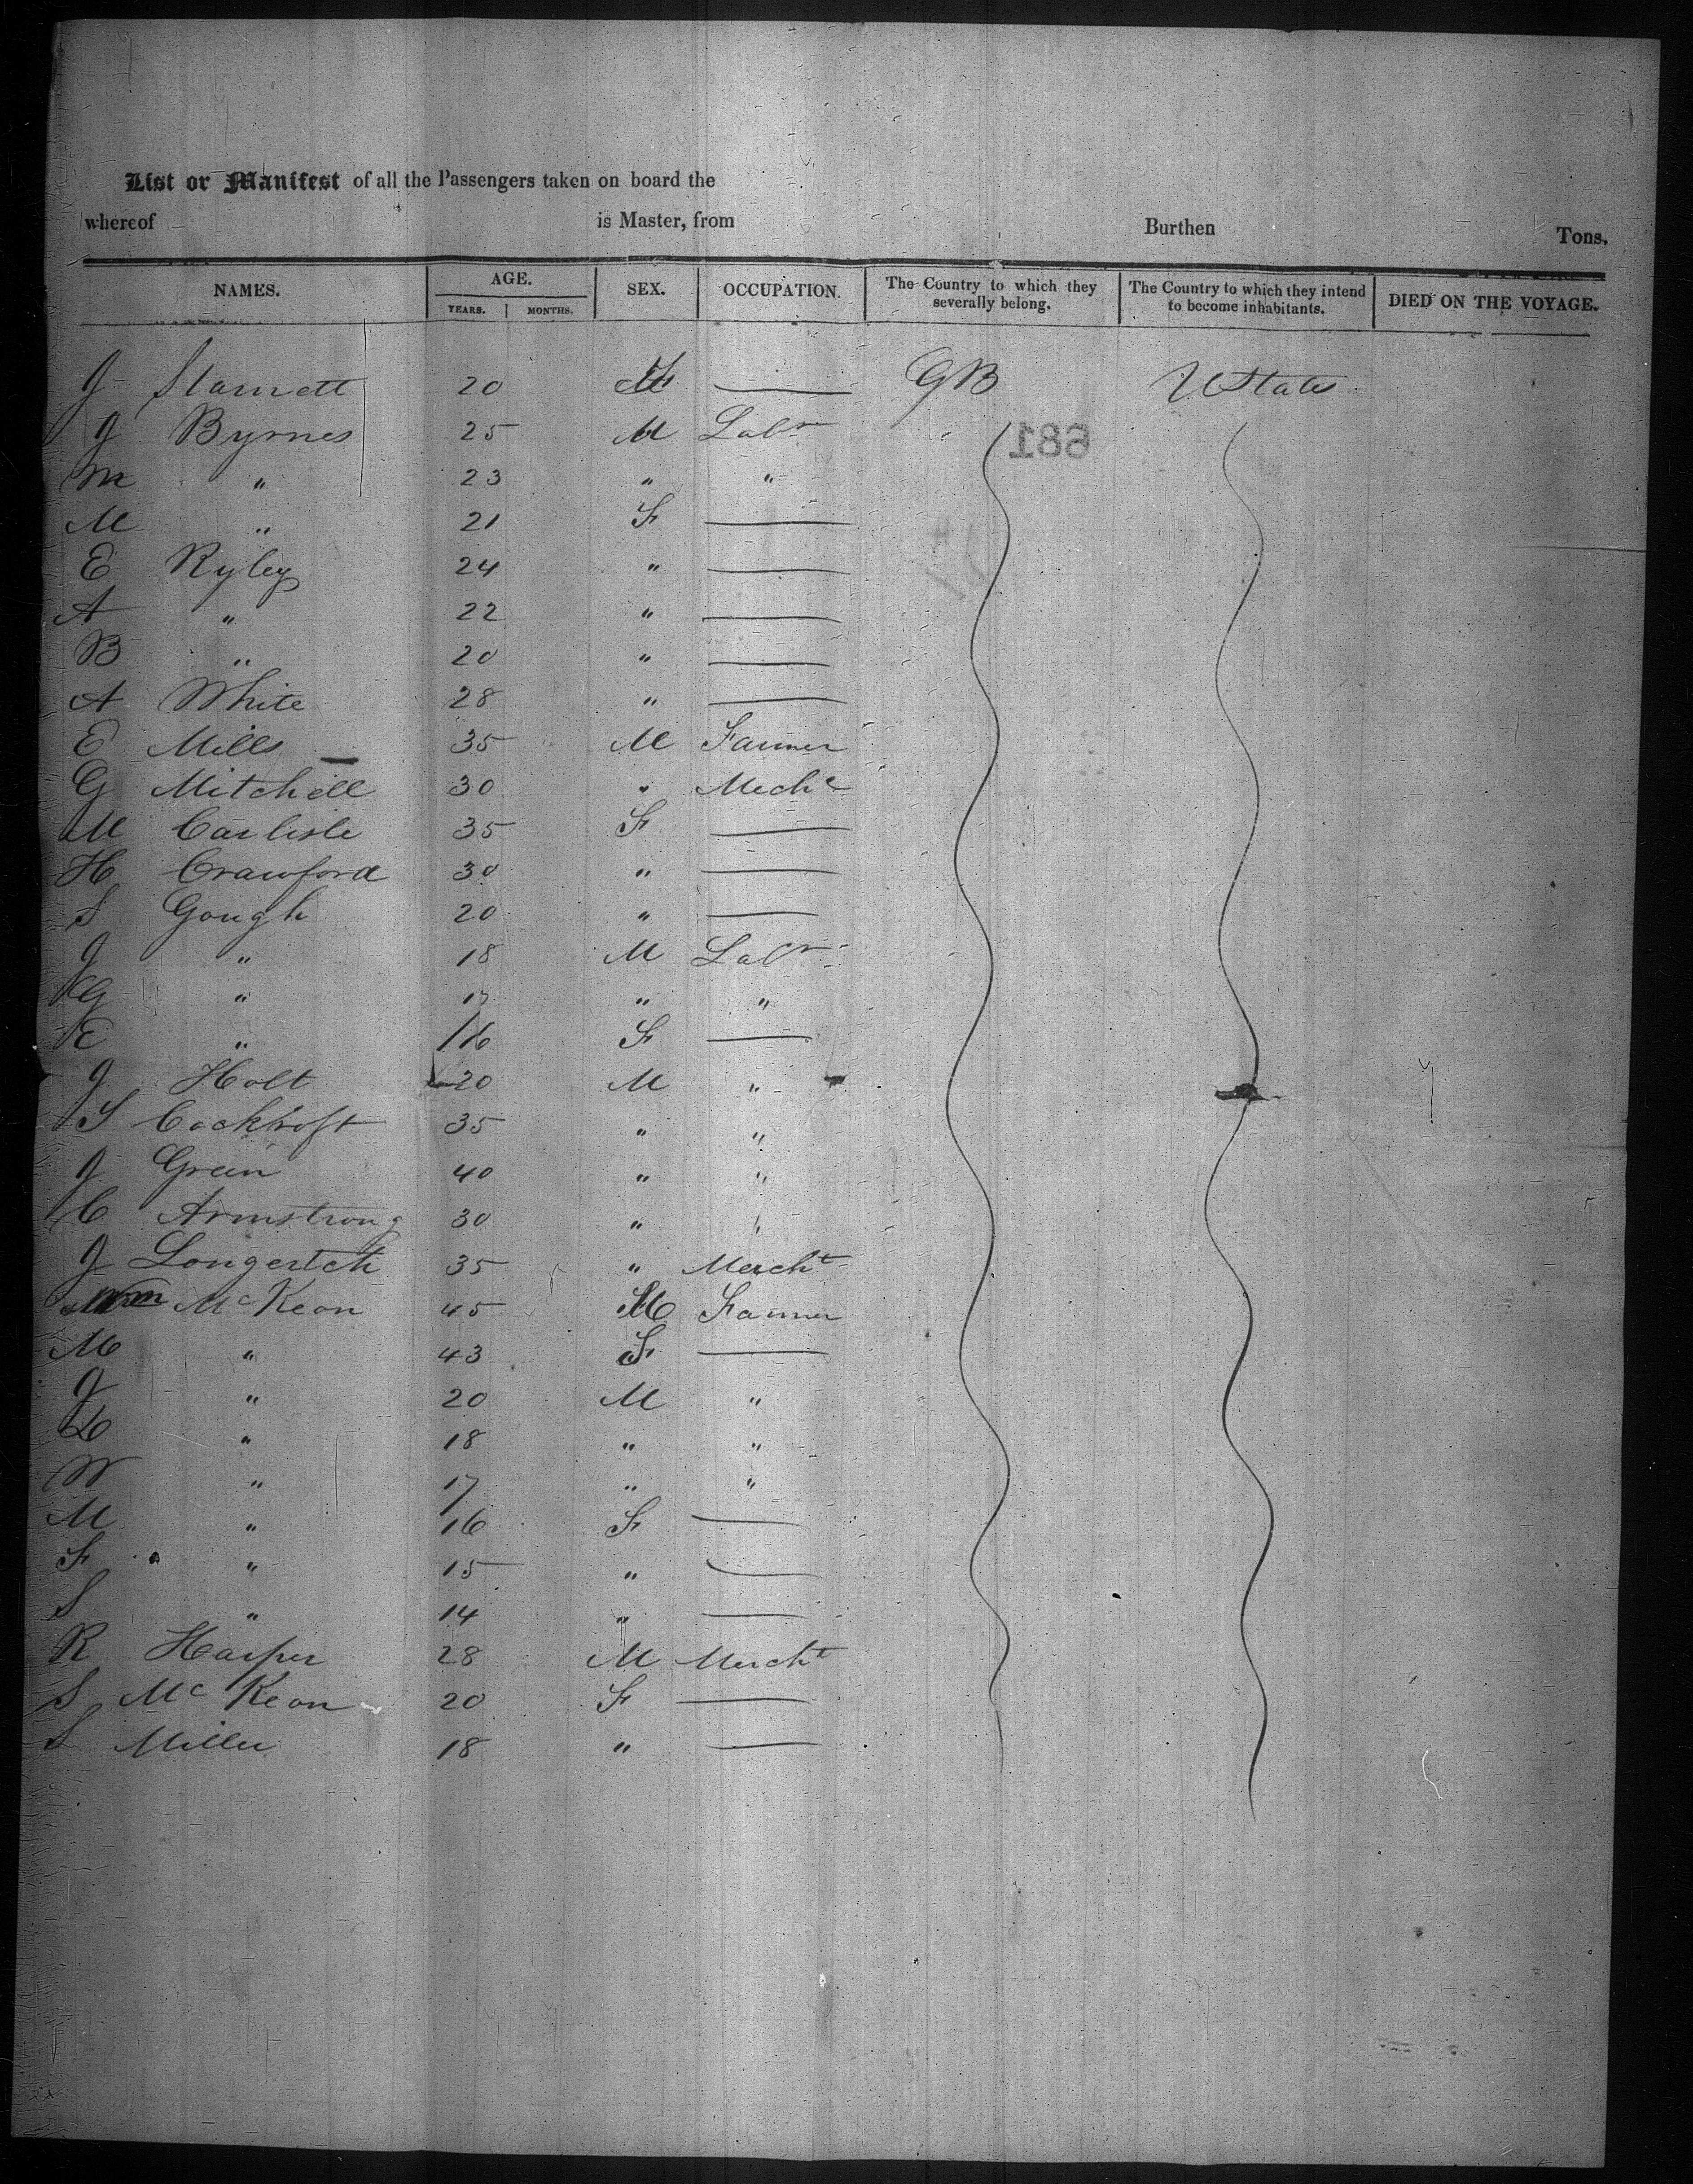 List or Manifest of all the Passengers taken on board the
whereof is Master, from Burthen Tons.
NAMES. AGE. SEX. OCCUPATION. The Country to which they severally belong. The Country to which they intend to become inhabitants. DIED ON THE VOYAGE.
YEARS. MONTHS.
J Starrett 20 F — GB U States
J Byrnes 25 M Labr
M " 23 " "
M " 21 F —
E Ryley 24 " —
A " 22 " —
B " 20 " —
A White 28 " —
E Mills 35 M Farmer
G Mitchell 30 " Mechc
M Carlisle 35 F —
H Crawford 30 " —
S Gough 20 " —
J " 18 M Labr
G " 17 " "
E " 16 F —
J Holt 20 M "
S Cockroft 35 " "
J Green 40 " "
C Armstrong 30 " "
J 35 " Mercht
Wm McKeon 45 M Farmer
M " 43 F —
J " 20 M "
" 18 " "
W " 17 " "
M " 16 F —
F " 15 " —
S " 14 " —
R Harper 28 M Mercht
S McKeon 20 F —
S Miller 18 " —
681